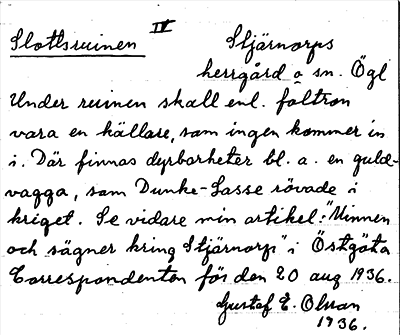 IV
Slottsruinen Stjärnorps
herrgård o sn. Ögl
Under ruinen skall enl. foltron
vara en källare, som ingen kommer in
i. Där finnas dyrbarheter bl. a. en guld-
vagga, som Dunke-Lasse rövade i
kriget. Se vidare min artikel: "Minnen
och sägner kring Stjärnorp" i Östgöta
Correspondenten för den 20 aug 1936.
Gustaf E. Olsson
1936.